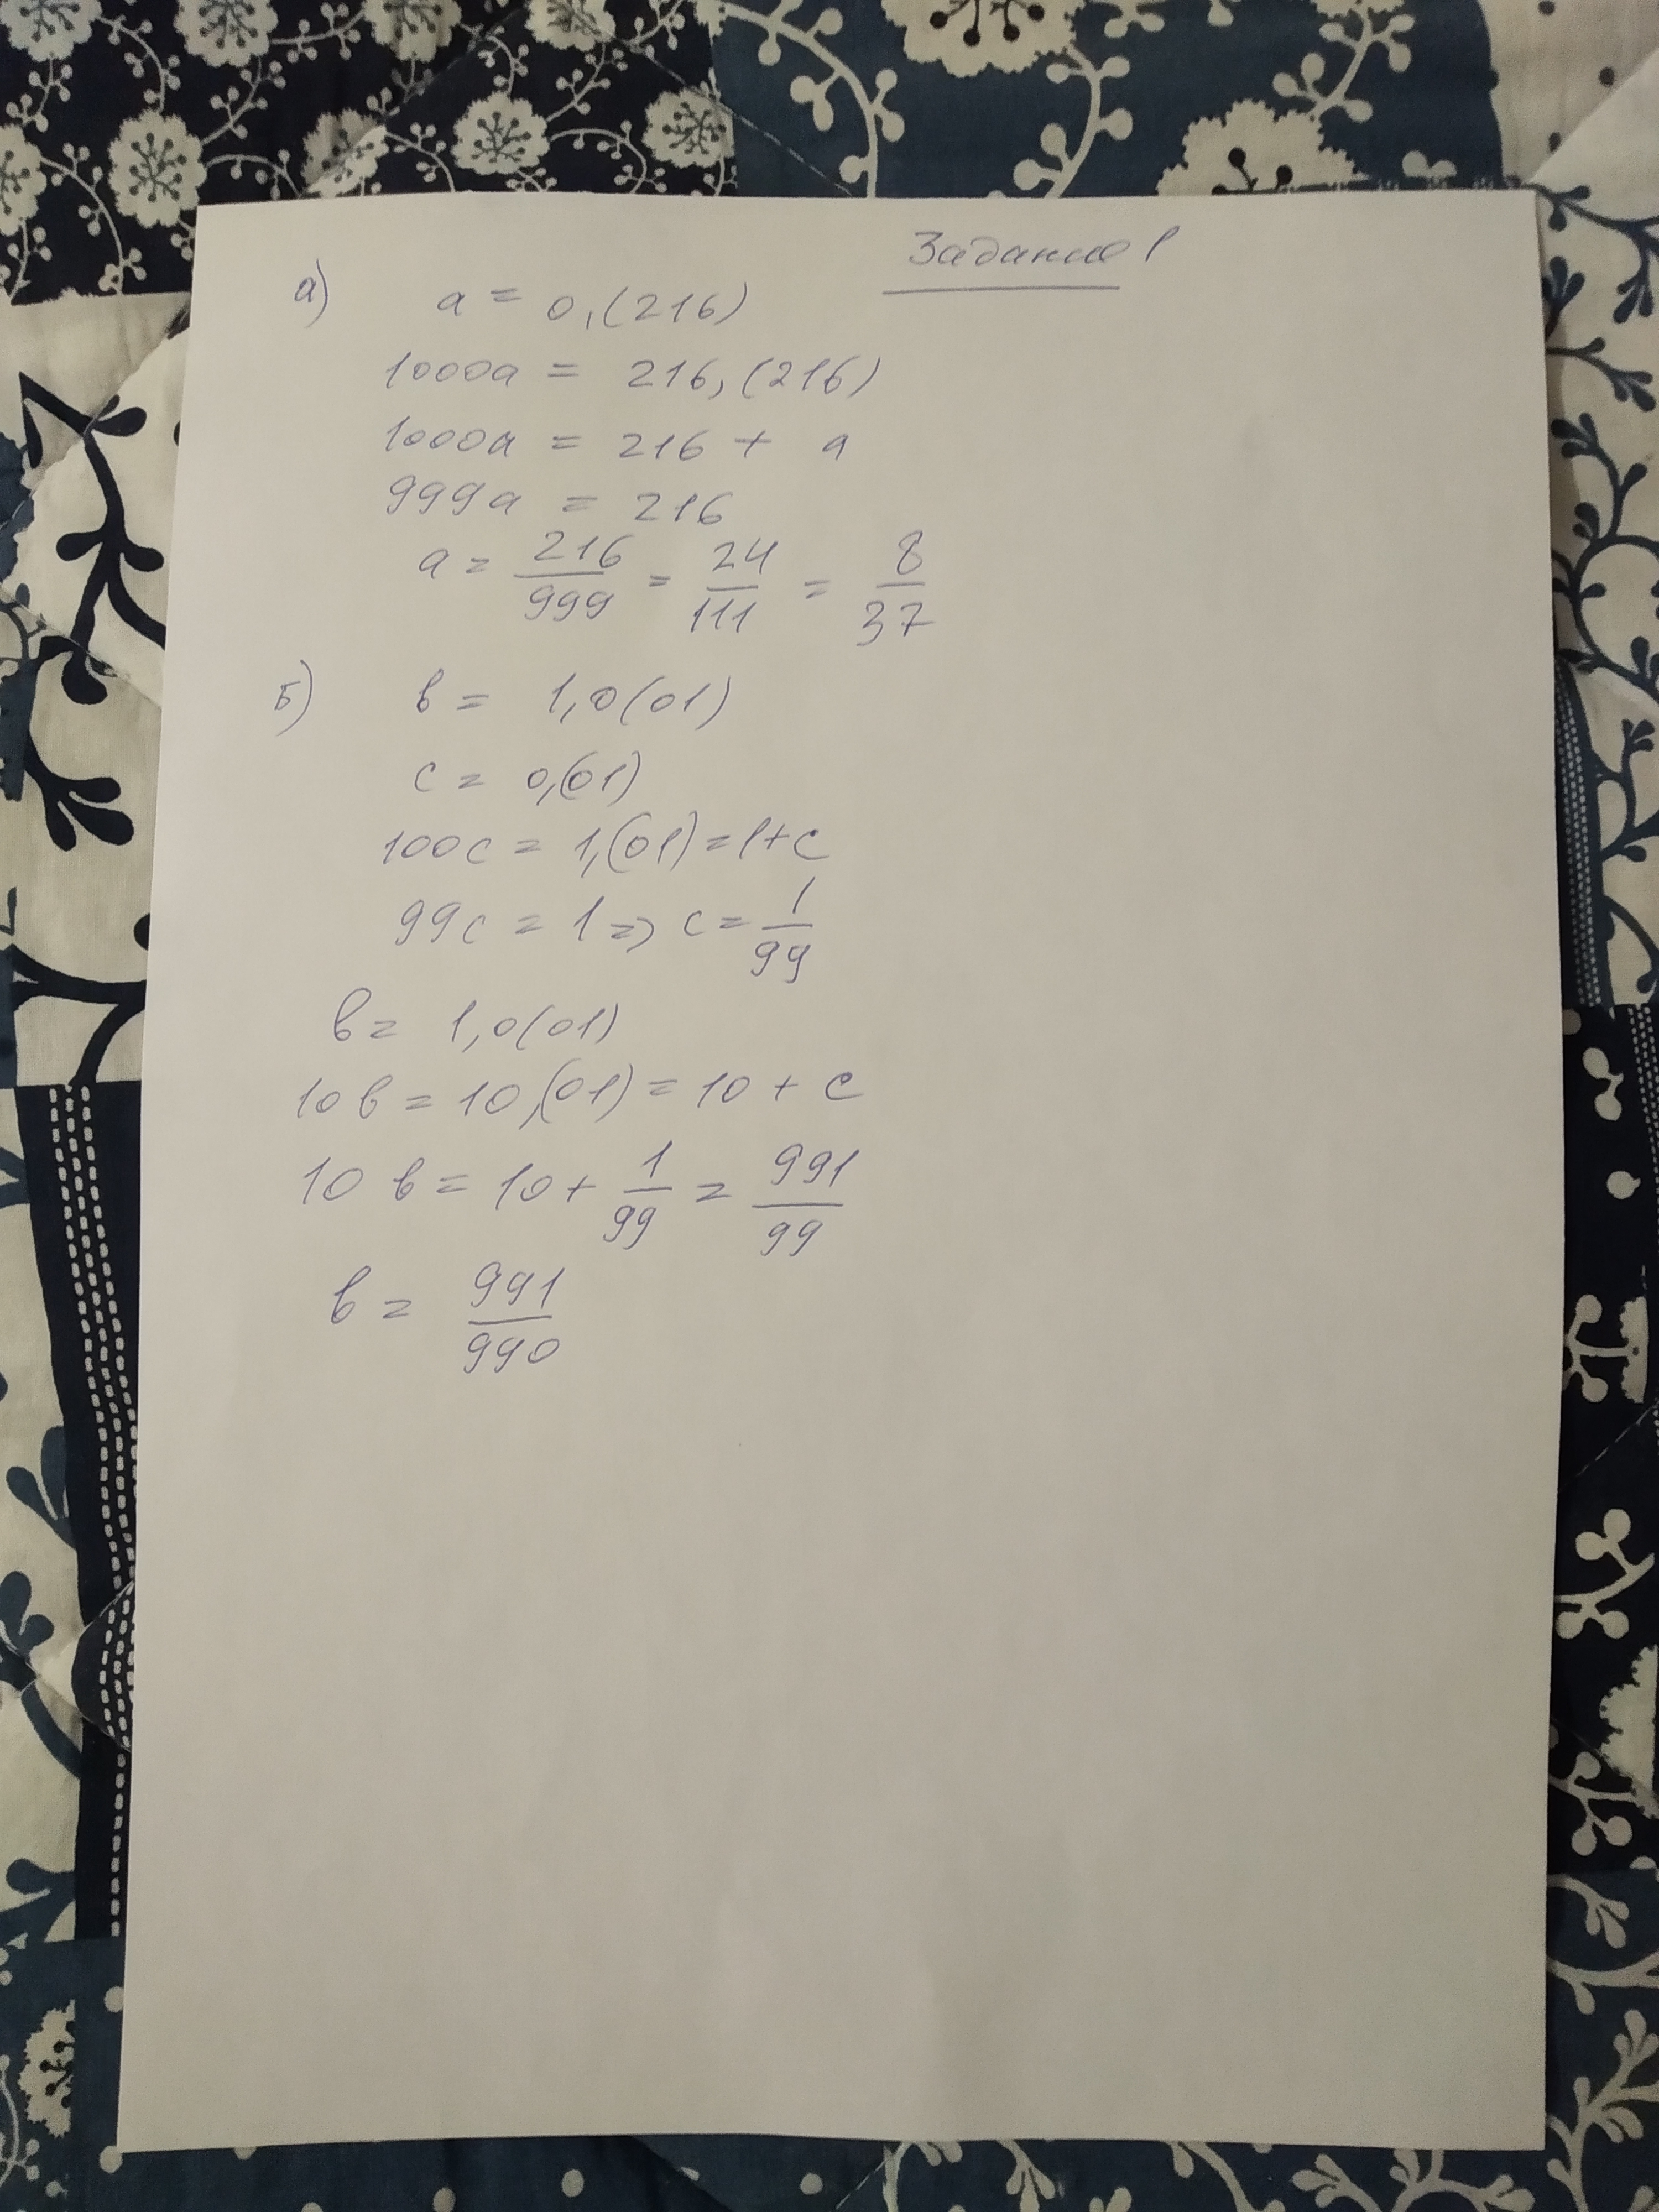 Задание 1
а) a = 0,(216)
1000a = 216,(216)
1000a = 216 + a
999a = 216
a = 216/999 = 24/111 = 8/37
б) b = 1,0(01)
c = 0,(01)
100c = 1,(01) = 1+c
99c = 1 => c = 1/99
b = 1,0(01)
10b = 10,(01) = 10 + c
10b = 10 + 1/99 = 991/99
b = 991/990